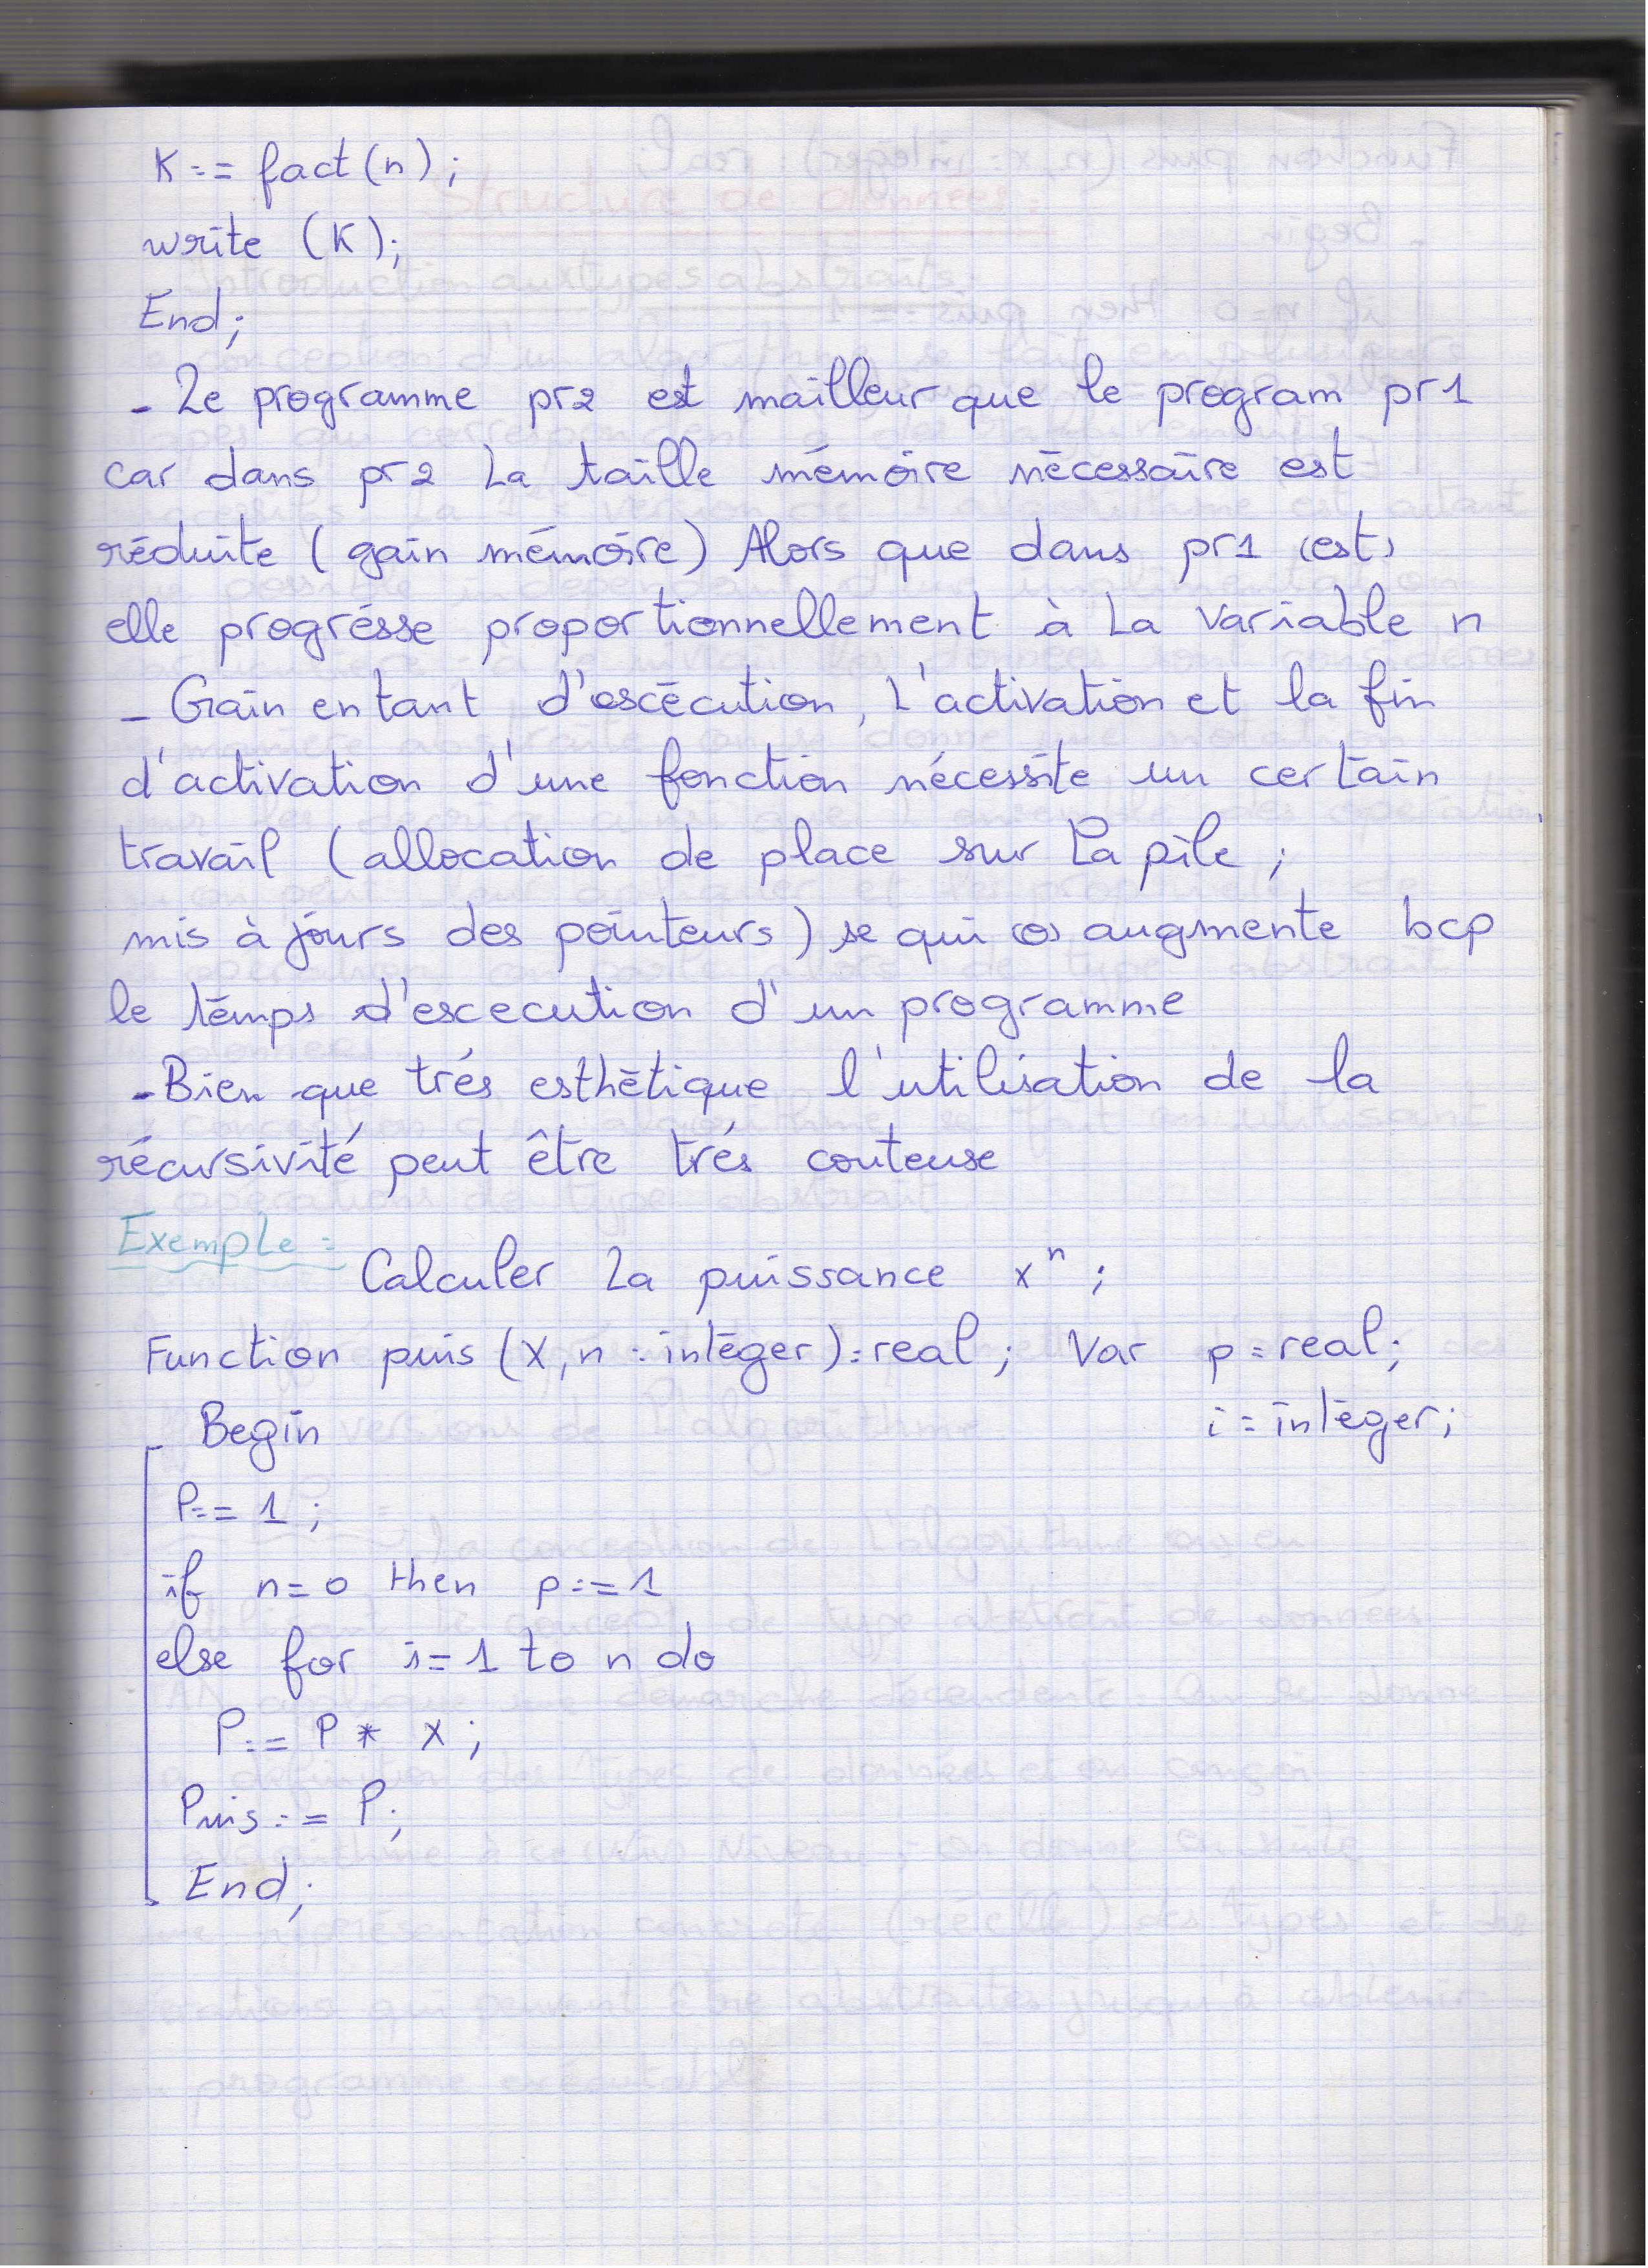 K:= fact(n);
write (K);
End;
- Le programme pr2 est mailleur que le program pr1
car dans pr2 La taille mémoire nécessaire est
réduite (gain mémoire) Alors que dans pr1 (est)
elle progrésse proportionnellement à La variable n
- Gain en tant d'escécution, L'activation et la fin
d'activation d'une fonction nécessite un certain
travail (allocation de place sur La pile ;
mis à jours des pointeurs) se qui augmente bcp
le temps d'escecution d'un programme
- Bien que trés esthétique l'utilisation de la
récursivité peut être trés couteuse
Exemple:
Calculer La puissance xⁿ ;
Function puis (X, n : integer): real ; Var p : real;
Begin i : integer;
P:= 1 ;
if n=0 then p:=1
else for i=1 to n do
P:= P * X ;
Puis:= P;
End;